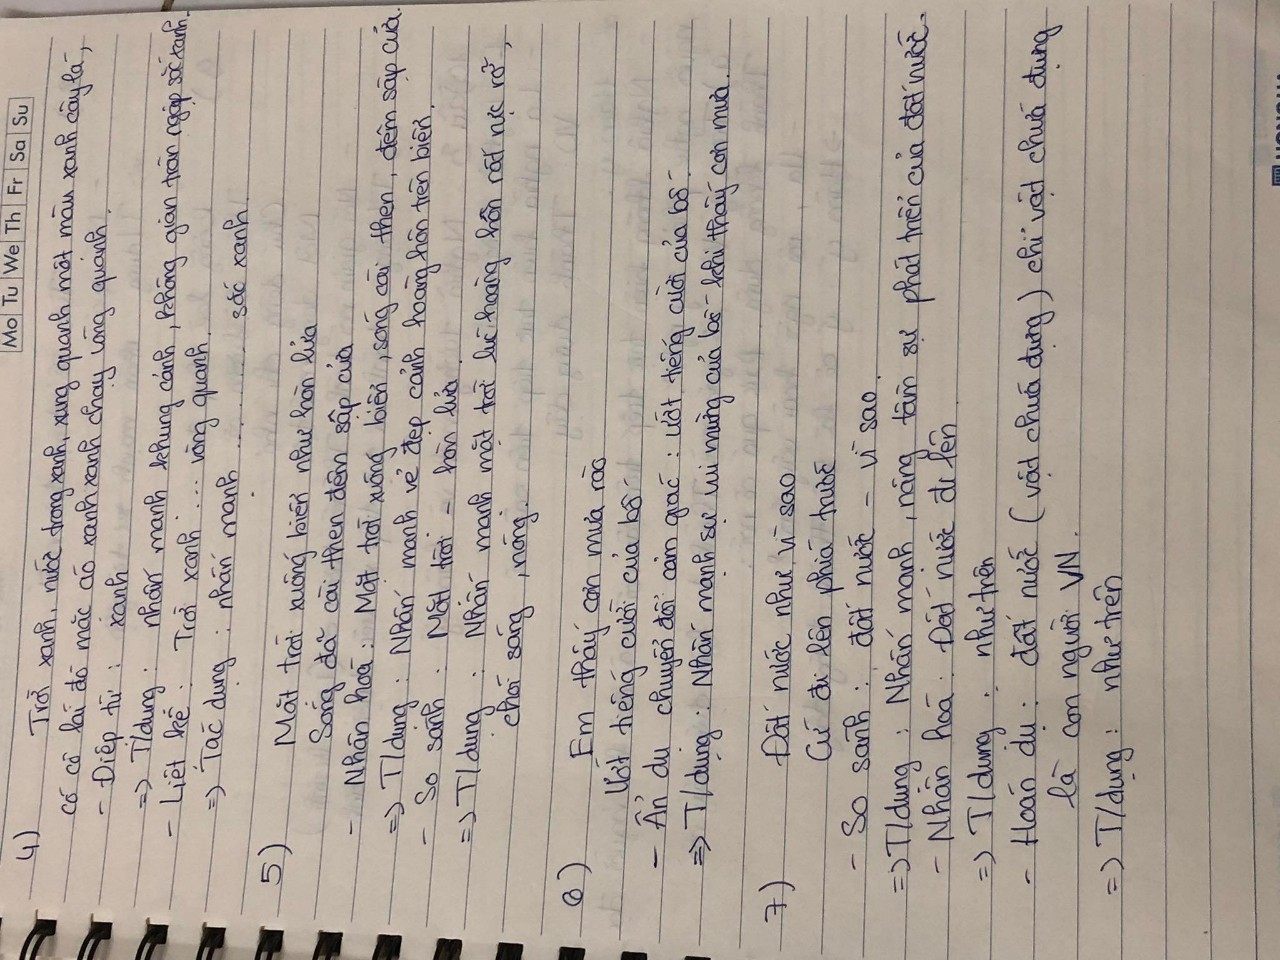 Mo Tu We Th Fr Sa Su
4) Trời xanh, nước trong xanh, xung quanh một màu xanh cây lá,
có cô lái đò mặc áo xanh xanh chạy vòng quanh.
- Điệp từ : xanh
=> T/dụng : nhấn mạnh khung cảnh, không gian tràn ngập sắc xanh.
- Liệt kê : Trời xanh ... vòng quanh
=> Tác dụng : nhấn mạnh ............ sắc xanh
5) Mặt trời xuống biển như hòn lửa
Sóng đã cài then đêm sập cửa
- Nhân hoá : Mặt trời xuống biển, sóng cài then, đêm sập cửa.
=> T/dụng : Nhấn mạnh vẻ đẹp cảnh hoàng hôn trên biển.
- So sánh : Mặt trời - hòn lửa
=> T/dụng : Nhấn mạnh mặt trời lúc hoàng hôn rất rực rỡ,
chói sáng, nóng.
6) Em thấy cơn mưa rào
Ướt tiếng cười của bố
- Ẩn dụ chuyển đổi cảm giác : ướt tiếng cười của bố.
=> T/dụng : Nhấn mạnh sự vui mừng của bố khi thấy cơn mưa.
7) Đất nước như vì sao
Cứ đi lên phía trước
- So sánh : đất nước - vì sao.
=> T/dụng : Nhấn mạnh, nâng tầm sự phát triển của đất nước.
- Nhân hoá : Đất nước đi lên
=> T/dụng : như trên
- Hoán dụ : đất nước (vật chứa đựng) chỉ vật chứa đựng
là con người VN.
=> T/dụng : như trên